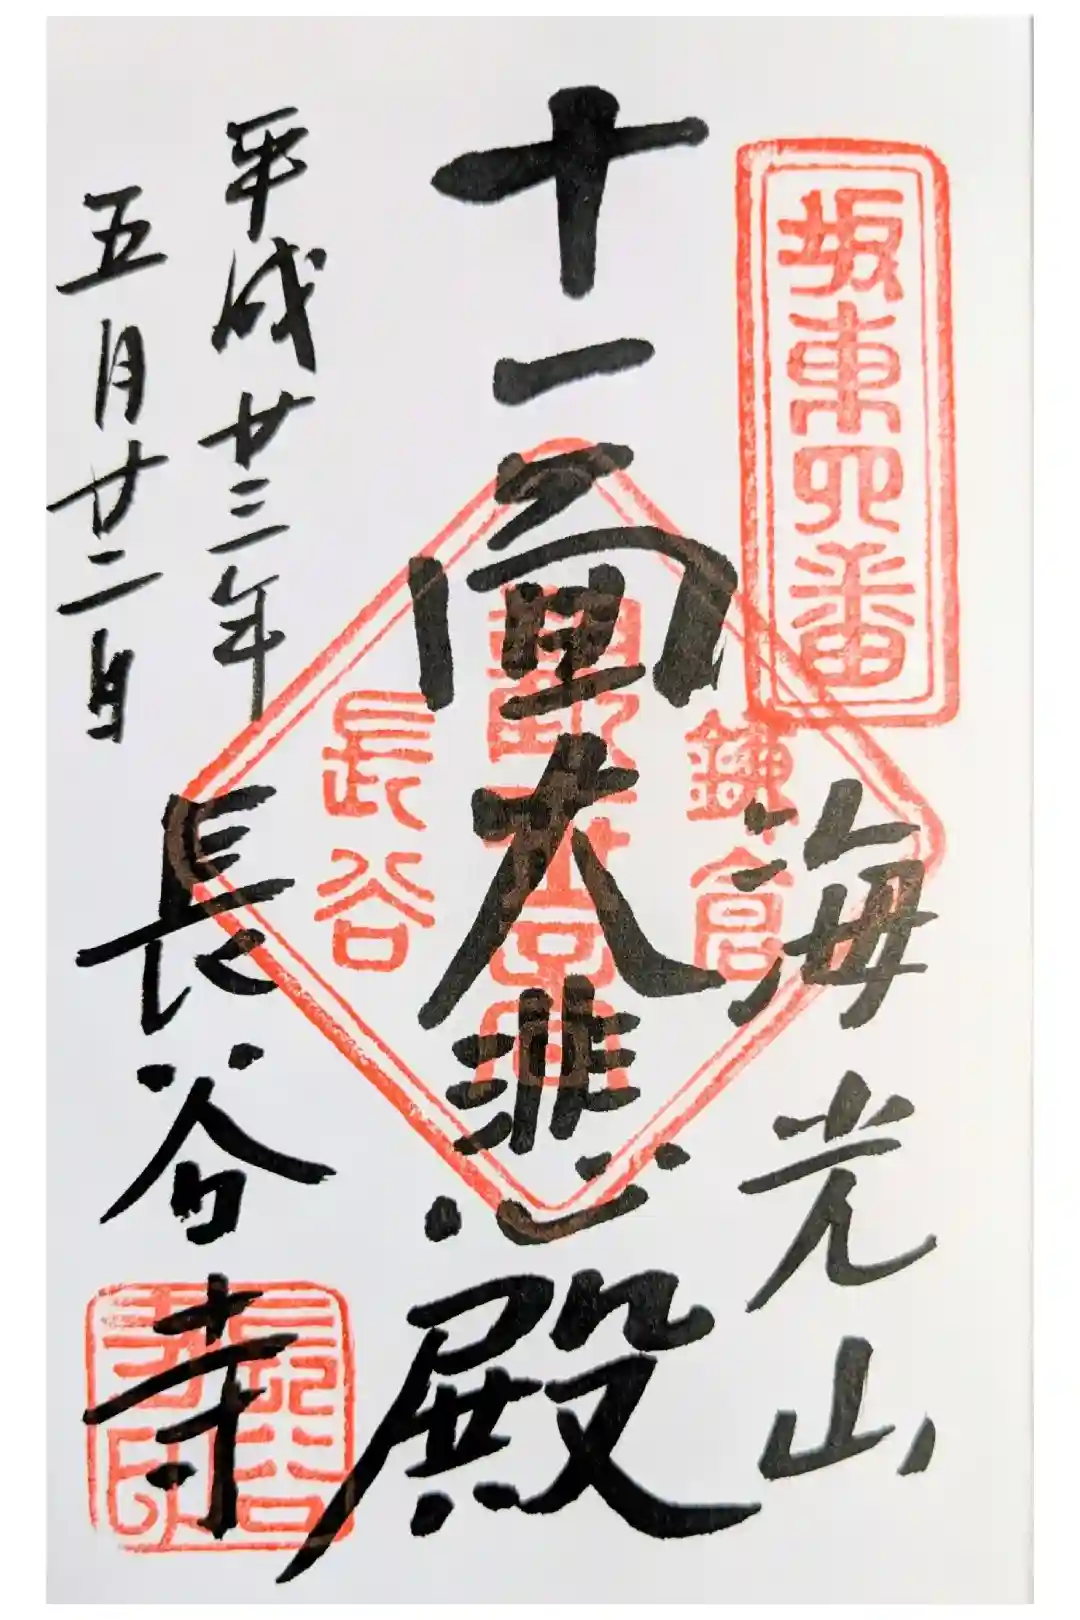 坂東四番
海光山
十一面大悲殿
鎌倉
観世音
長谷
平成廿三年
五月廿二日
長谷寺
長谷
寺印